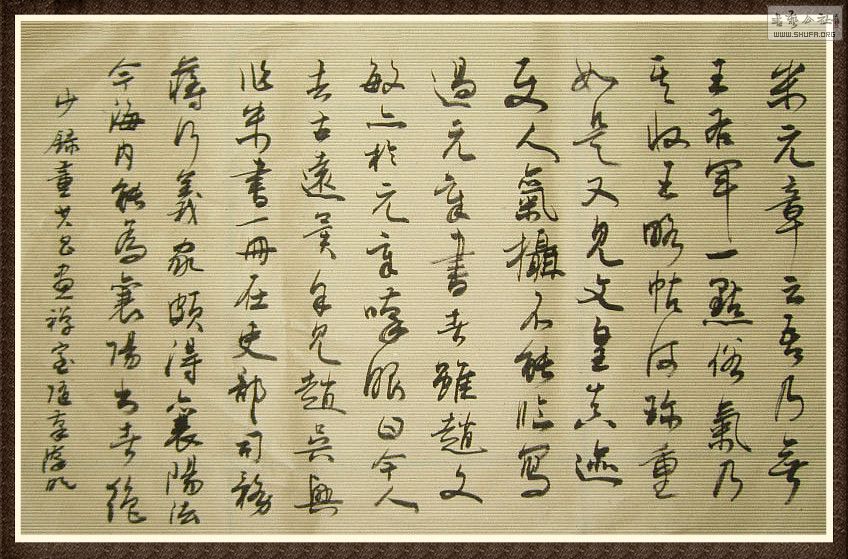 米元章云吾乃無
王右軍一點俗氣乃
其收王略帖何珍重
如是又見文皇真迹
使人氣攝不能临寫
過元章書者雖趙文
敏亦於元章嘆服曰今人
去古遠矣余見趙吴興
作米書一冊在吏部司務
蒋行義家颇得襄陽法
今海内能為襄陽書者絶
少録董其昌畫禅室随筆
书藝公社
WWW.SHUFA.ORG